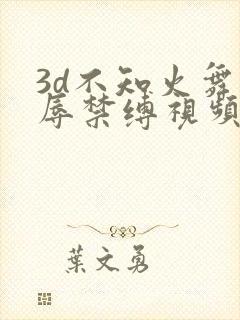 3d不知火舞
辱禁縛視頻
葉文勇